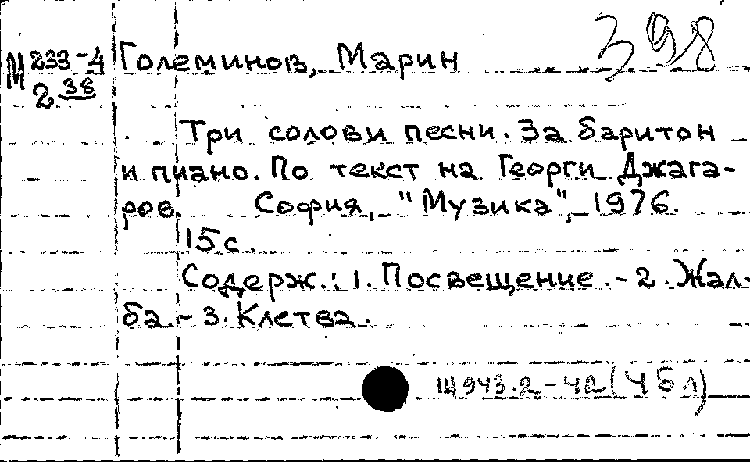 М 233-4 Големинов, Марин 398
2 38
Три солови песни. За баритон
и пиано. По текст на Георги Джага-
ров. София, "Музика", 1976.
15 с.
Содерж.: 1. Посвещение. - 2. Жал-
ба. - 3. Клетва.
Щ943.2-42 (45л)